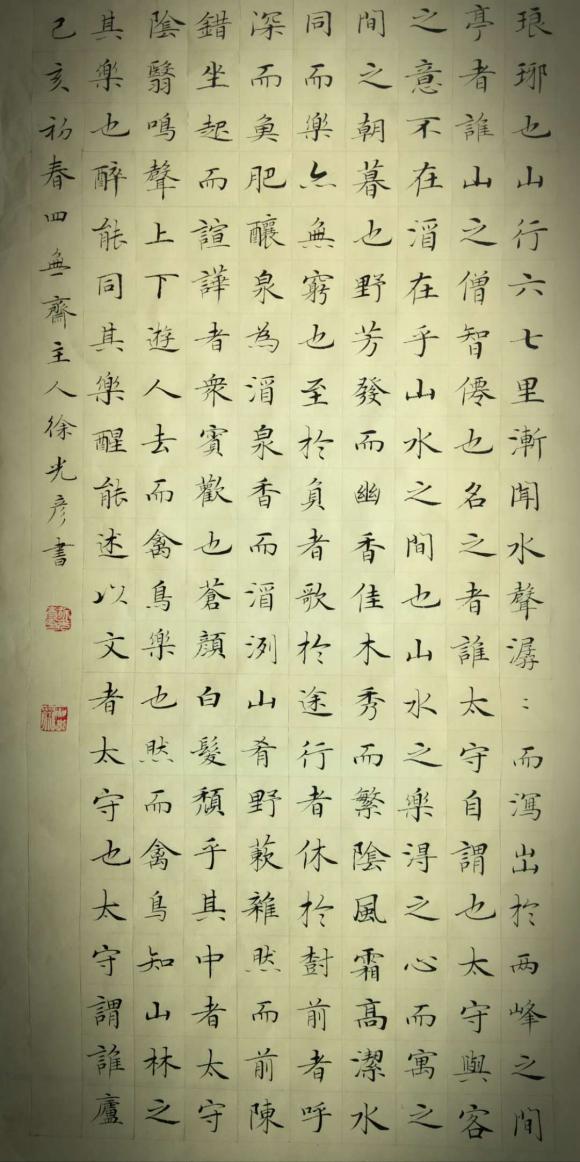 琅琊也山行六七里漸聞水聲潺〻而瀉出於两峰之間
亭者誰山之僧智僊也名之者誰太守自謂也太守與客
之意不在酒在乎山水之間也山水之樂得之心而寓之
間之朝暮也野芳發而幽香佳木秀而繁陰風霜高潔水
同而樂亦無窮也至於負者歌於途行者休於樹前者呼
深而魚肥釀泉為酒泉香而酒洌山肴野蔌雜然而前陳
錯坐起而諠譁者衆賓歡也蒼顏白髮頹乎其中者太守
陰翳鳴聲上下遊人去而禽鳥樂也然而禽鳥知山林之
其樂也醉能同其樂醒能述以文者太守也太守謂誰廬
己亥初春四無齋主人徐光彥書